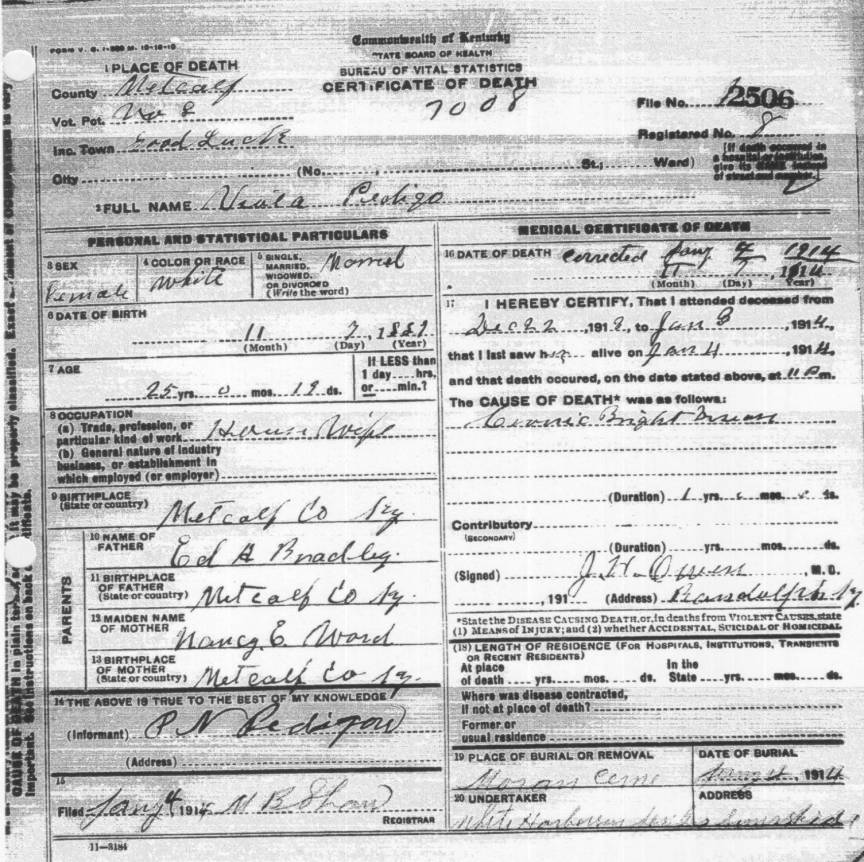 FORM V. S. 1-
Commonwealth of Kentucky
STATE BOARD OF HEALTH
BUREAU OF VITAL STATISTICS
CERTIFICATE OF DEATH
7008
1 PLACE OF DEATH
County Metcalf
Vot. Pct. No 8
Inc. Town Good Luck
City (No. , St.; Ward)
File No. 2506
Registered No. 8
[If death occurred in a hospital or institution, give its NAME instead of street and number.]
2 FULL NAME Pedigo
PERSONAL AND STATISTICAL PARTICULARS
3 SEX Female
4 COLOR OR RACE White
5 SINGLE, MARRIED, WIDOWED, OR DIVORCED (Write the word)
6 DATE OF BIRTH
11 7, 1889
(Month) (Day) (Year)
7 AGE
25 yrs. 0 mos. 19 ds.
If LESS than 1 day....hrs, or....min.?
8 OCCUPATION
(a) Trade, profession, or particular kind of work House Wife
(b) General nature of industry business, or establishment in which employed (or employer)
9 BIRTHPLACE (State or country) Metcalf Co Ky.
PARENTS
10 NAME OF FATHER Ed A Bradley.
11 BIRTHPLACE OF FATHER (State or country) Metcalf Co Ky.
12 MAIDEN NAME OF MOTHER Nancy E Word
13 BIRTHPLACE OF MOTHER (State or country) Metcalf Co Ky.
14 THE ABOVE IS TRUE TO THE BEST OF MY KNOWLEDGE
(Informant) P N Pedigow
(Address)
15
Filed Jany 4 1914 M B Shaw
REGISTRAR
11—3184
MEDICAL CERTIFICATE OF DEATH
16 DATE OF DEATH corrected Jany 4 1914
11 7 1914
(Month) (Day) Year)
17 I HEREBY CERTIFY, That I attended deceased from
Dec 22, 191 , to Jan 3 1914,
that I last saw her alive on Jan 4, 1914,
and that death occured, on the date stated above, at 11 P m.
The CAUSE OF DEATH* was as follows:
Cronic Bright
(Duration) 1 yrs. 0 mos. 0 ds.
Contributory
(SECONDARY)
(Duration) yrs. mos. ds.
(Signed) J. W. Owen, M. D.
, 191 (Address) Randolph Ky
*State the DISEASE CAUSING DEATH, or, in deaths from VIOLENT CAUSES, state
(1) MEANS OF INJURY; and (2) whether ACCIDENTAL, SUICIDAL or HOMICIDAL
(18) LENGTH OF RESIDENCE (FOR HOSPITALS, INSTITUTIONS, TRANSIENTS OR RECENT RESIDENTS)
At place of death yrs. mos. ds. In the State yrs. mos. ds.
Where was disease contracted, If not at place of death?
Former or usual residence
19 PLACE OF BURIAL OR REMOVAL
Moran Ceme
DATE OF BURIAL
, 1914
20 UNDERTAKER
White
ADDRESS
CAUSE OF DEATH in plain terms, it may be properly classified. Exact
Important. See instructions on back